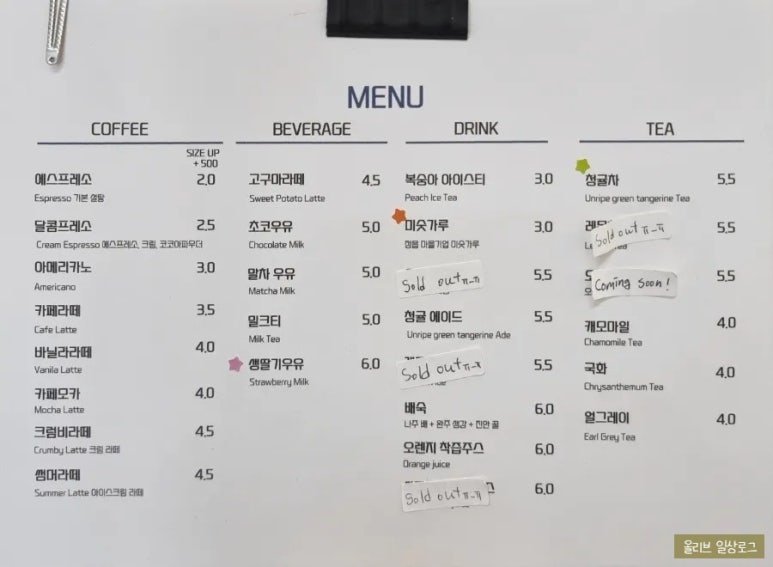 MENU
COFFEE
SIZE UP
+ 500
에스프레소 2.0
Espresso 기본 설탕
달콤프레소 2.5
Cream Espresso 에스프레소, 크림, 코코아파우더
아메리카노 3.0
Americano
카페라떼 3.5
Cafe Latte
바닐라라떼 4.0
Vanila Latte
카페모카 4.0
Mocha Latte
크럼비라떼 4.5
Crumby Latte 크림 라떼
썸머라떼 4.5
Summer Latte 아이스크림 라떼
BEVERAGE
고구마라떼 4.5
Sweet Potato Latte
초코우유 5.0
Chocolate Milk
말차 우유 5.0
Matcha Milk
밀크티 5.0
Milk Tea
생딸기우유 6.0
Strawberry Milk
DRINK
복숭아 아이스티 3.0
Peach Ice Tea
미숫가루 3.0
정읍 마을기업 미숫가루
Sold out ㅠ_ㅠ 5.5
청귤 에이드 5.5
Unripe green tangerine Ade
Sold out ㅠ_ㅠ 5.5
배숙 6.0
나주 배 + 완주 생강 + 진안 꿀
오렌지 착즙주스 6.0
Orange juice
Sold out ㅠ_ㅠ 6.0
TEA
청귤차 5.5
Unripe green tangerine Tea
Sold out ㅠ_ㅠ 5.5
Coming Soon! 5.5
캐모마일 4.0
Chamomile Tea
국화 4.0
Chrysanthemum Tea
얼그레이 4.0
Earl Grey Tea
올리브 일상로그